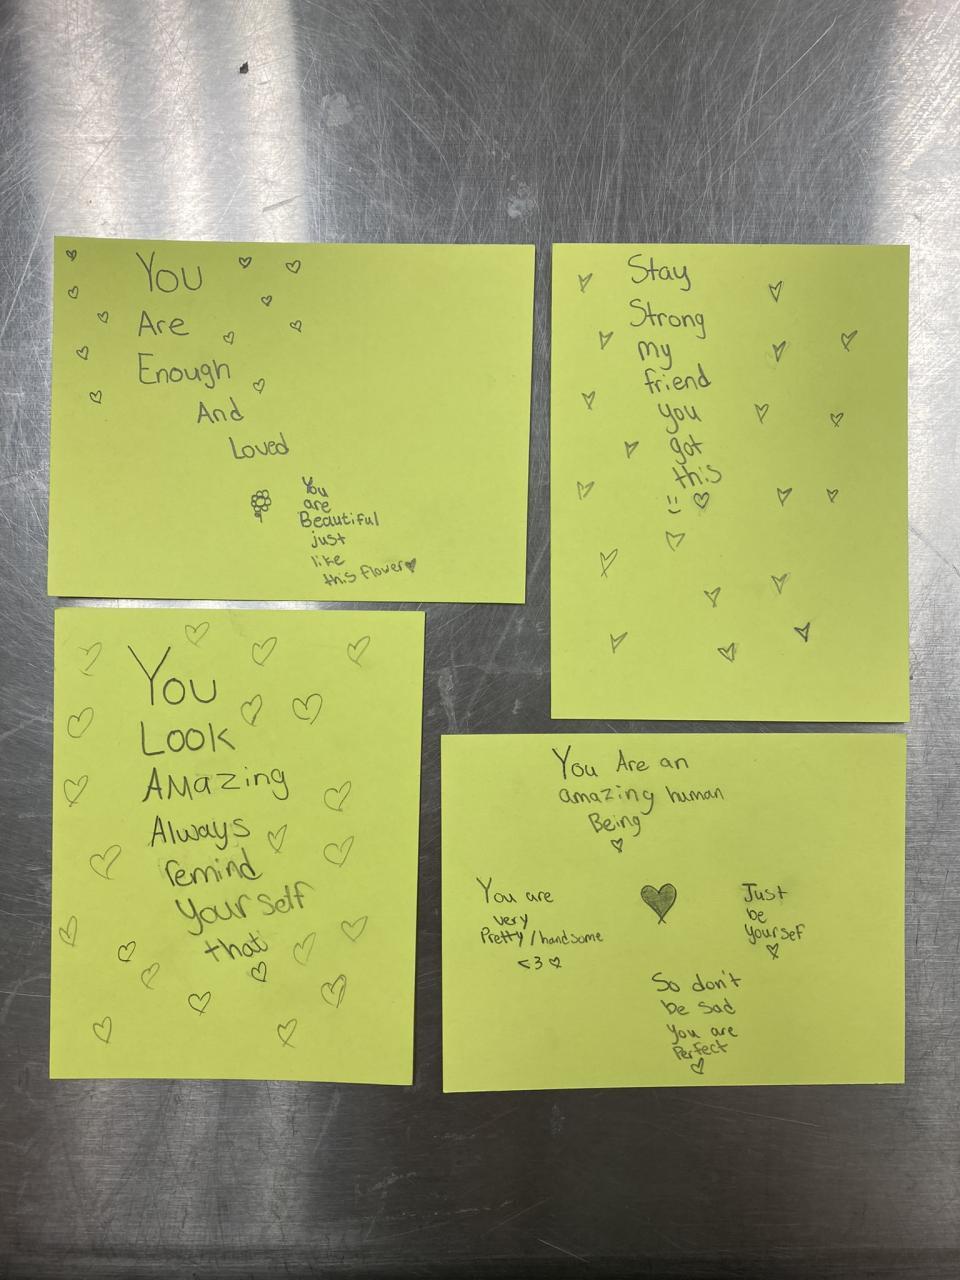 You
Are
Enough
And
Loved
You
are
Beautiful
just
like
this flower
Stay
Strong
My
friend
you
got
this
You
Look
AMazing
Always
remind
yourself
that
You Are an
amazing human
Being
You are
very
Pretty/handsome
<3
Just
be
yoursef
So don't
be sad
you are
Perfect